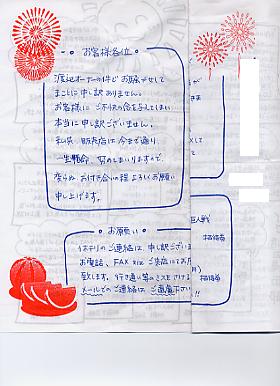 お客様各位
渡辺オーナーの件で お騒がせして
まことに申し訳ありません。
お客様に ご不快の念を与えてしまい
本当に申し訳ございません。
私共 販売店は 今まで通り
一生懸命 努めてまいりますので、
変らぬ お付き合いの程 よろしくお願い
申し上げます。
お願い
ホテリのご連絡は、申し訳ございま
お電話、FAX 又は ご来店にてお
致します。行き違い等のミスをさける
メールでのご連絡は ご遠慮下さい
が
さま
して
巨人戦
招待券
招待券
!!